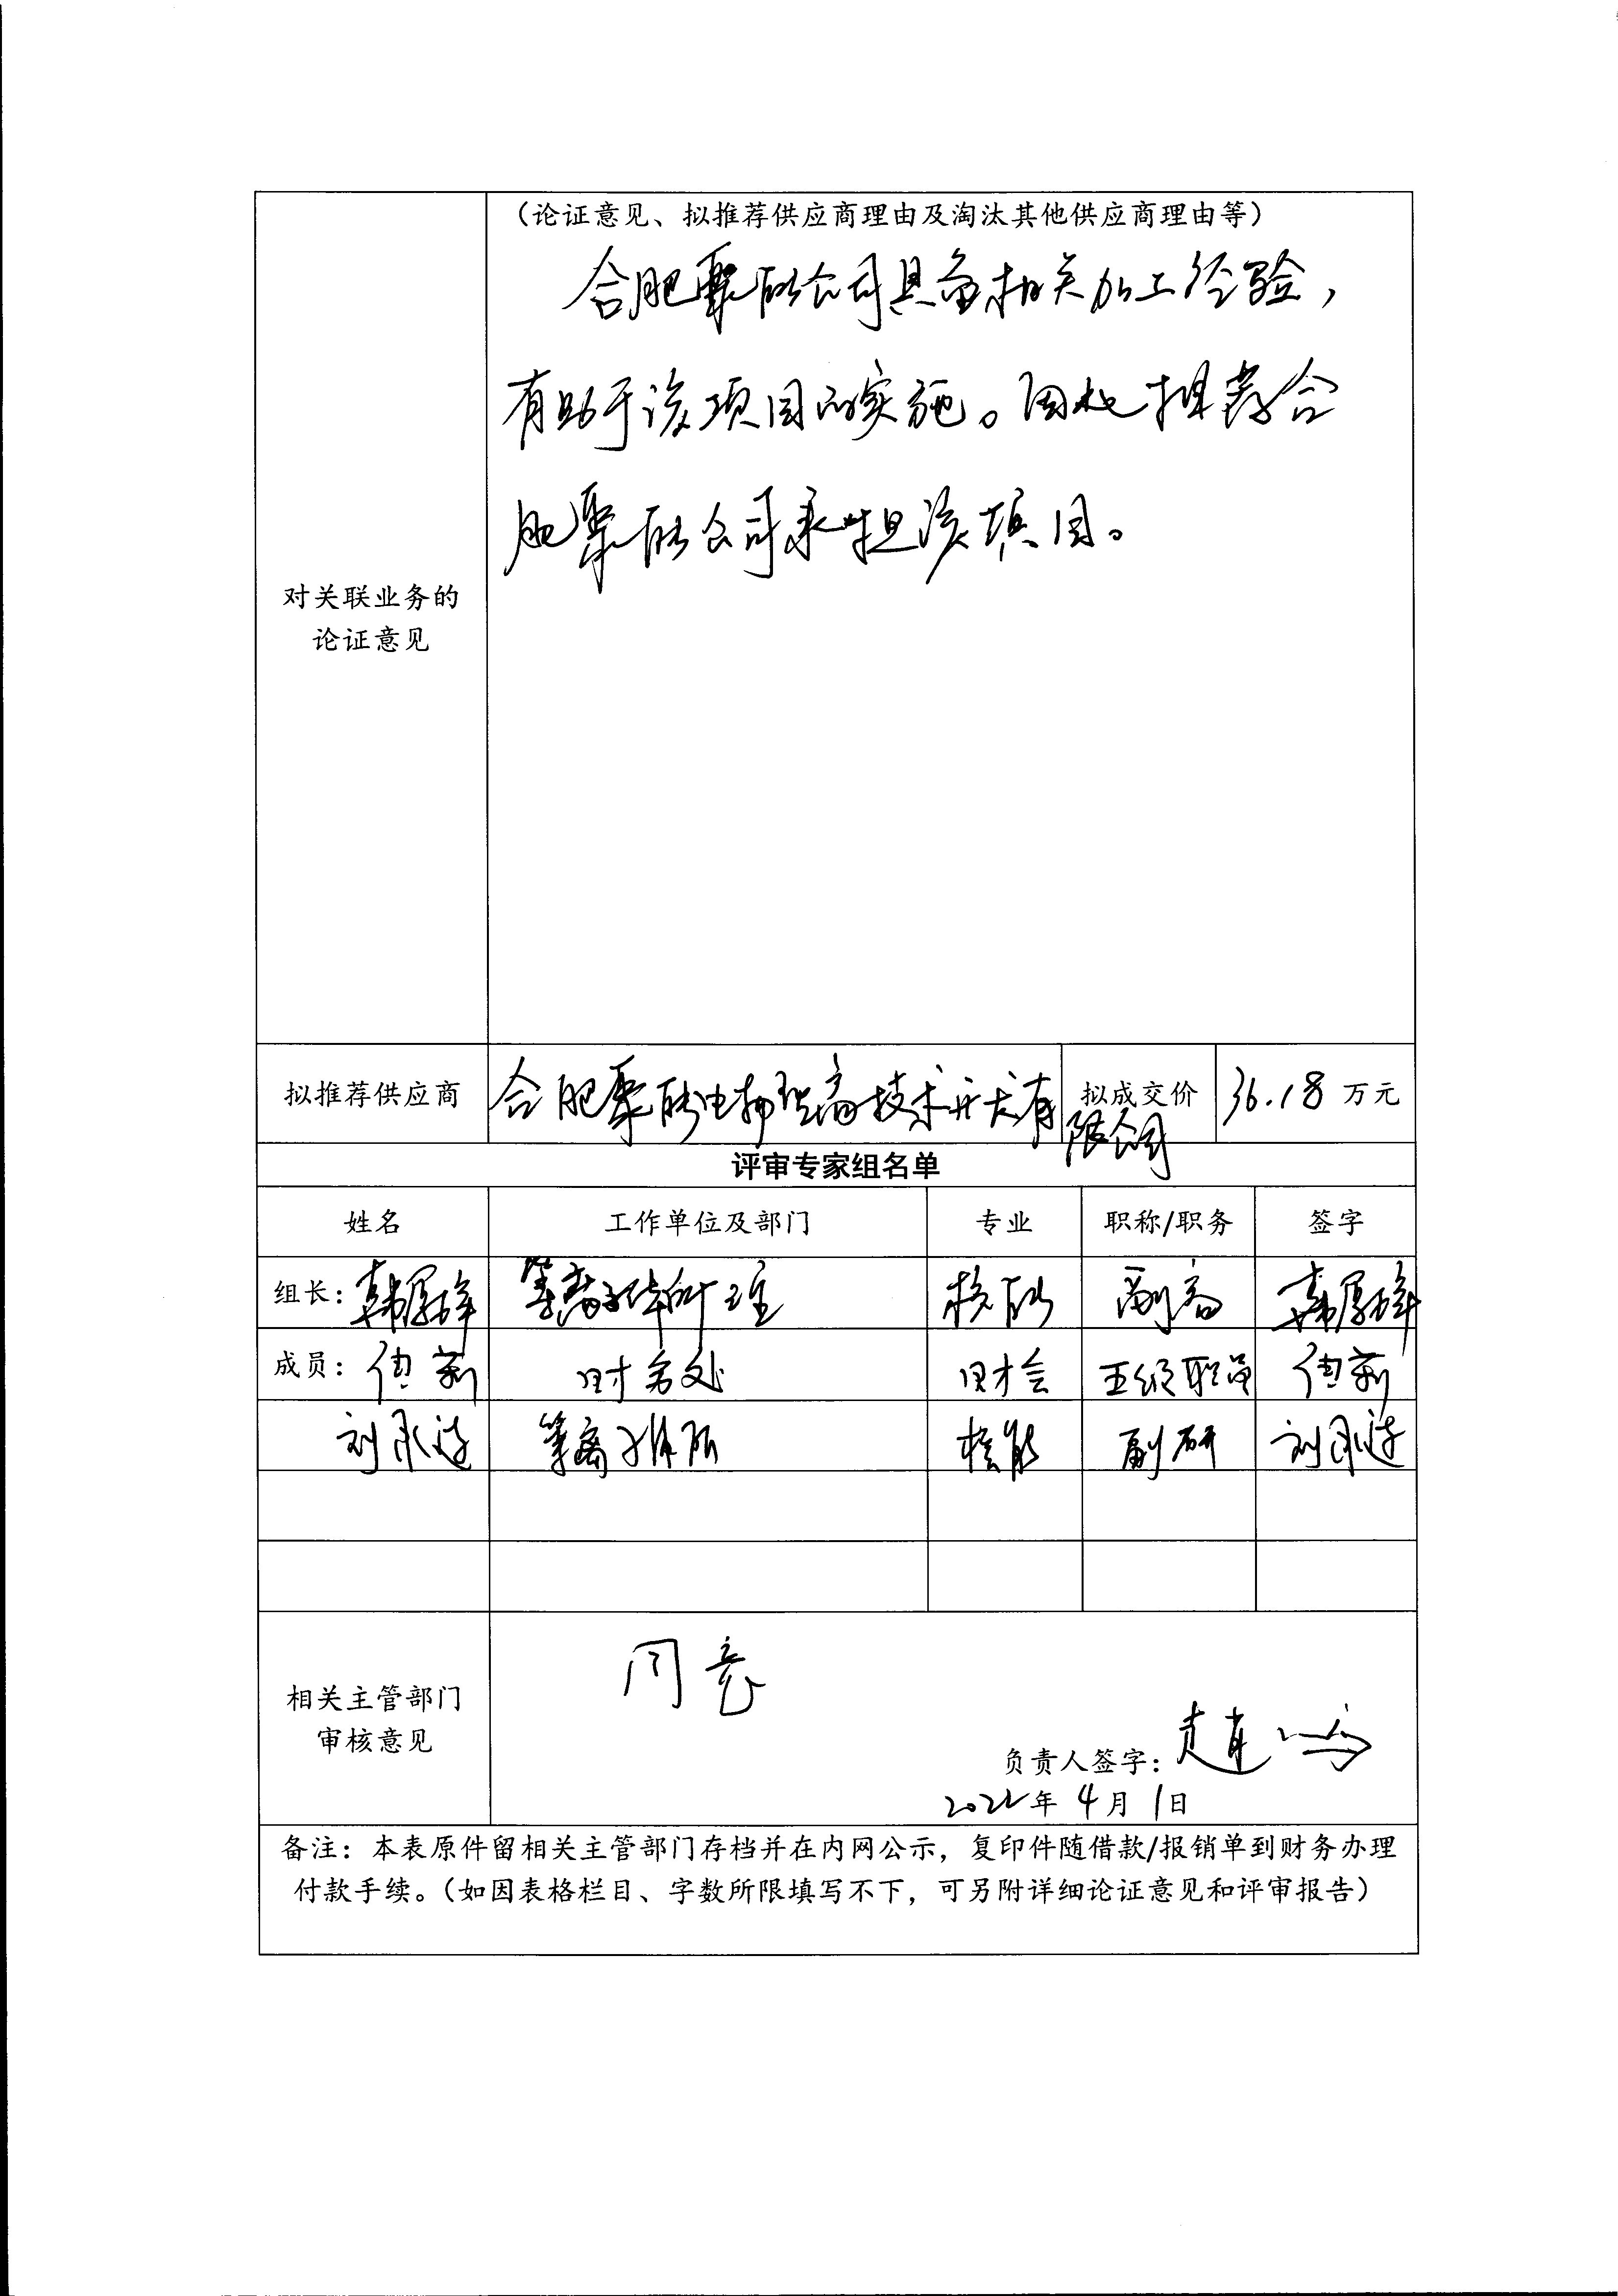 (论证意见、拟推荐供应商理由及淘汰其他供应商理由等)
合肥聚能公司具备相关加工经验,
有助于该项目的实施。因此推荐合
肥聚能公司承担该项目。
对关联业务的
论证意见
拟推荐供应商 合肥聚能电物理高技术开发有限公司 拟成交价 36.18 万元
评审专家组名单
姓名 工作单位及部门 专业 职称/职务 签字
组长: 韩厚祥 等离子体所 核能 副高 韩厚祥
成员: 财务处 财会 五级职员
刘永 等离子体所 核能 副研 刘永
同意
相关主管部门
审核意见
负责人签字:
2022年 4月 1日
备注: 本表原件留相关主管部门存档并在内网公示, 复印件随借款/报销单到财务办理
付款手续。(如因表格栏目、字数所限填写不下, 可另附详细论证意见和评审报告)